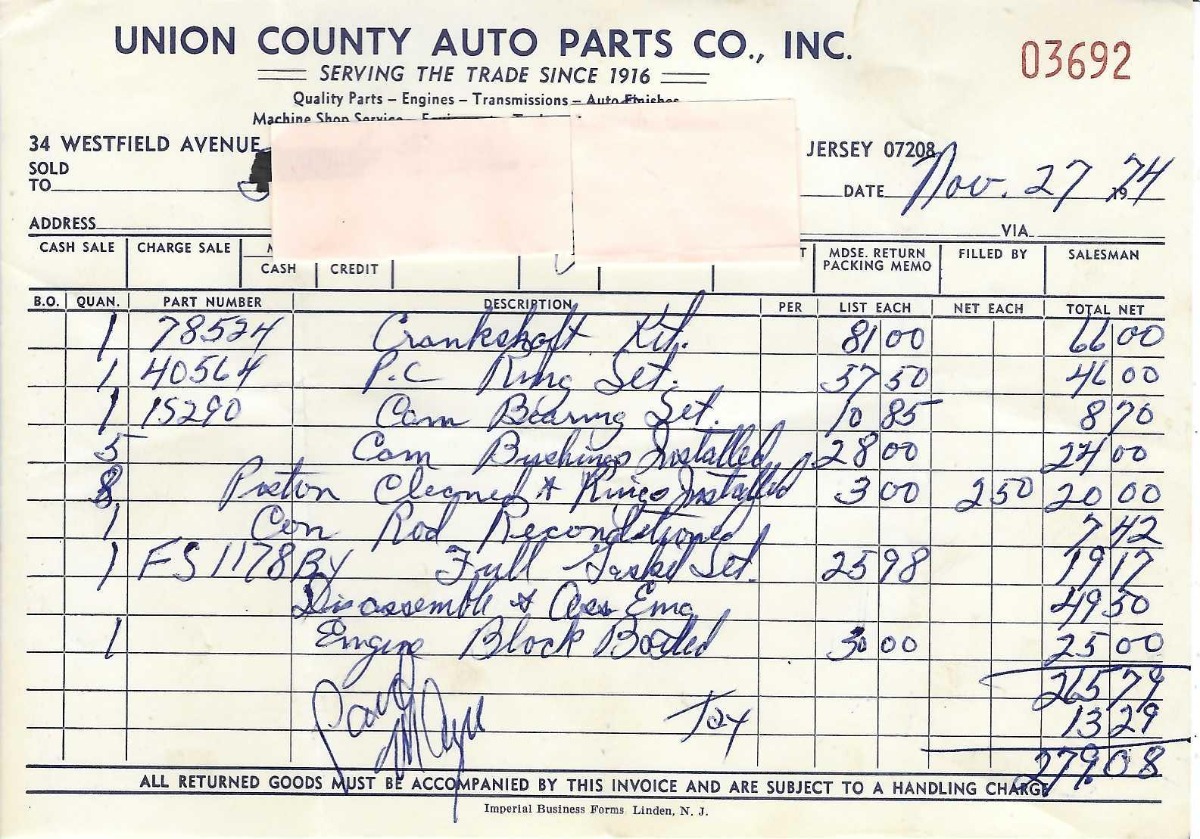 UNION COUNTY AUTO PARTS CO., INC.
03692
SERVING THE TRADE SINCE 1916
Quality Parts – Engines – Transmissions – Auto Finishes
Machine Shop Service –
34 WESTFIELD AVENUE JERSEY 07208
SOLD
TO DATE Nov. 27 1974
ADDRESS VIA
CASH SALE CHARGE SALE CASH CREDIT MDSE. RETURN PACKING MEMO FILLED BY SALESMAN
B.O. QUAN. PART NUMBER DESCRIPTION PER LIST EACH NET EACH TOTAL NET
1 78524 Crankshaft Kit. 81 00 66 00
1 40564 P.C Ring Set. 57 50 46 00
1 15290 Cam Bearing Set. 10 85 8 70
5 Cam Bushings Installed 28 00 24 00
8 Piston Cleaned & Rings Installed 3 00 2 50 20 00
1 Con Rod Reconditioned 7 42
1 FS 1178BY Full Gasket Set. 25 98 19 17
Disassemble & Ass Emg 49 50
1 Engine Block Boiled 30 00 25 00
265 79
Tax 13 29
279.08
ALL RETURNED GOODS MUST BE ACCOMPANIED BY THIS INVOICE AND ARE SUBJECT TO A HANDLING CHARGE
Imperial Business Forms Linden, N. J.